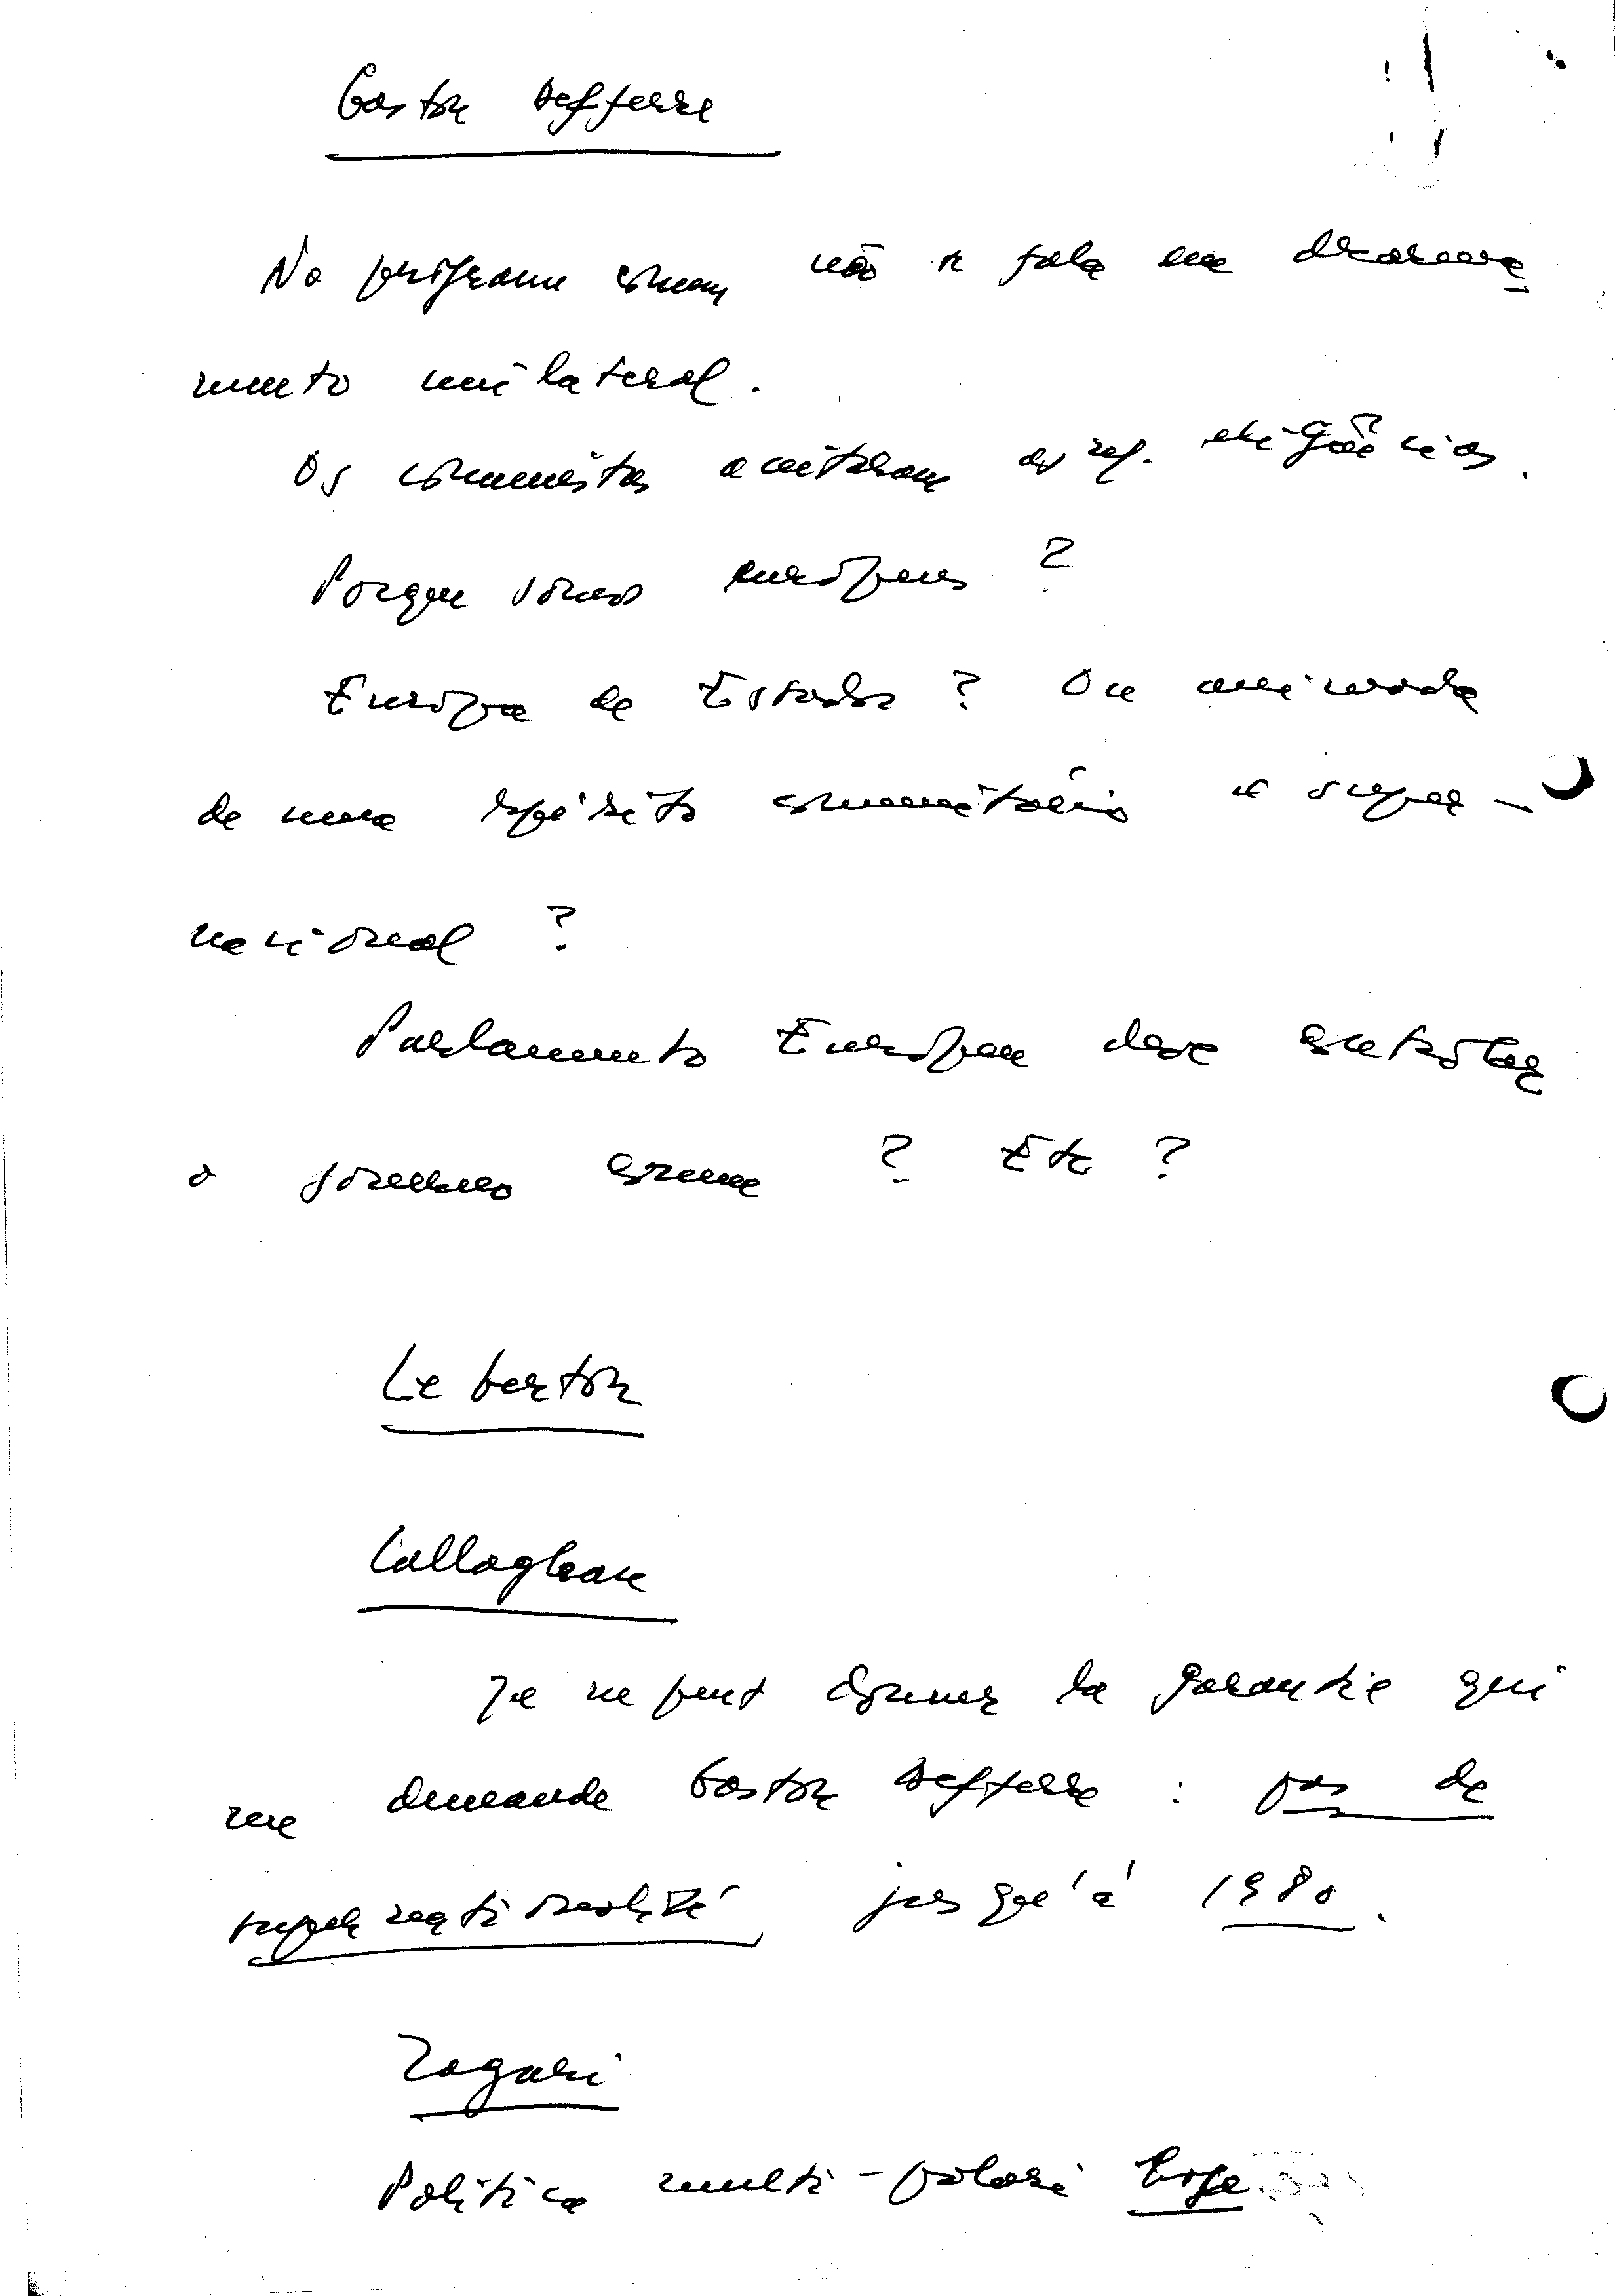 Gaston Defferre
No programa comum não se fala em desarma
mento unilateral.
Os comunistas aceitaram as ref. exigências.
Porque somos europeus ?
Europa de Estados ? Ou animada
de um espírito comunitário e super-
nacional ?
Parlamento Europeu deve controlar
o governo comum ? Etc ?
Le berton
Callaghan
Je ne peut donner la garantie qui
me demande Gaston Defferre : pas de
supernationalité jusqu'à 1980.
Zagari
Politica multi-polari